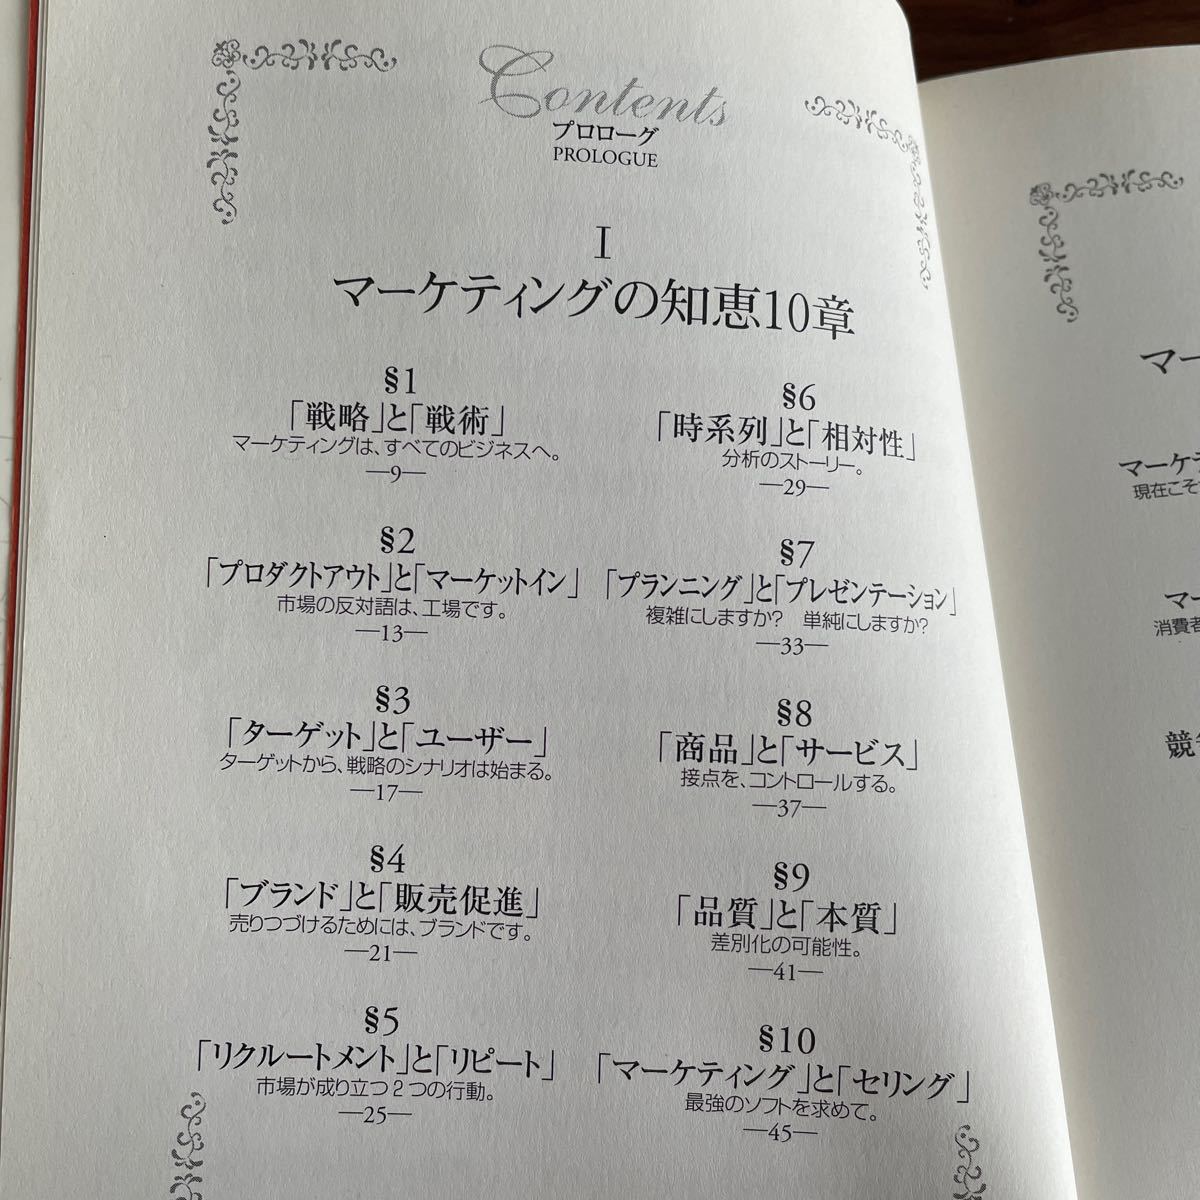 Contents
プロローグ
PROLOGUE
I
マーケティングの知恵10章
§1
「戦略」と「戦術」
マーケティングは、すべてのビジネスへ。
—9—
§2
「プロダクトアウト」と「マーケットイン」
市場の反対語は、工場です。
—13—
§3
「ターゲット」と「ユーザー」
ターゲットから、戦略のシナリオは始まる。
—17—
§4
「ブランド」と「販売促進」
売りつづけるためには、ブランドです。
—21—
§5
「リクルートメント」と「リピート」
市場が成り立つ2つの行動。
—25—
§6
「時系列」と「相対性」
分析のストーリー。
—29—
§7
「プランニング」と「プレゼンテーション」
複雑にしますか？　単純にしますか？
—33—
§8
「商品」と「サービス」
接点を、コントロールする。
—37—
§9
「品質」と「本質」
差別化の可能性。
—41—
§10
「マーケティング」と「セリング」
最強のソフトを求めて。
—45—
マー
マーケテ
現在こそ
マー
消費者